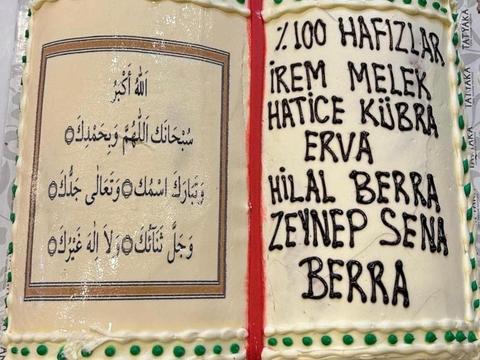 اَللّٰهُ اَكْبَرُ
سُبْحَانَكَ اللّٰهُمَّ وَبِحَمْدِكَ۞
وَتَبَارَكَ اسْمُكَ۞وَتَعَالٰى جَدُّكَ۞
وَجَلَّ ثَنَاۤئُكَ۞وَلَا اِلٰهَ غَيْرُكَ۞
%100 HAFIZLAR
İREM MELEK
HATİCE KÜBRA
ERVA
HİLAL BERRA
ZEYNEP SENA
BERRA
TATYAKA
TATYAKA
TATYAKA